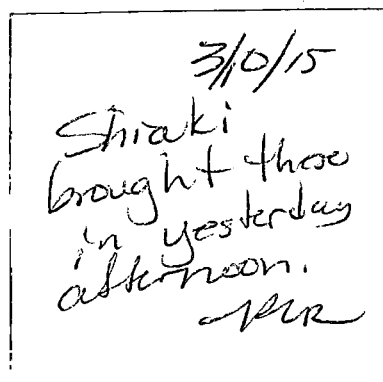 3/10/15
Shiraki
brought these
in yesterday
afternoon.